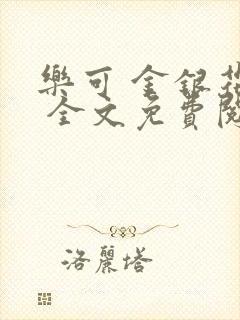 樂可 金銀花
全文免費閱
洛麗塔